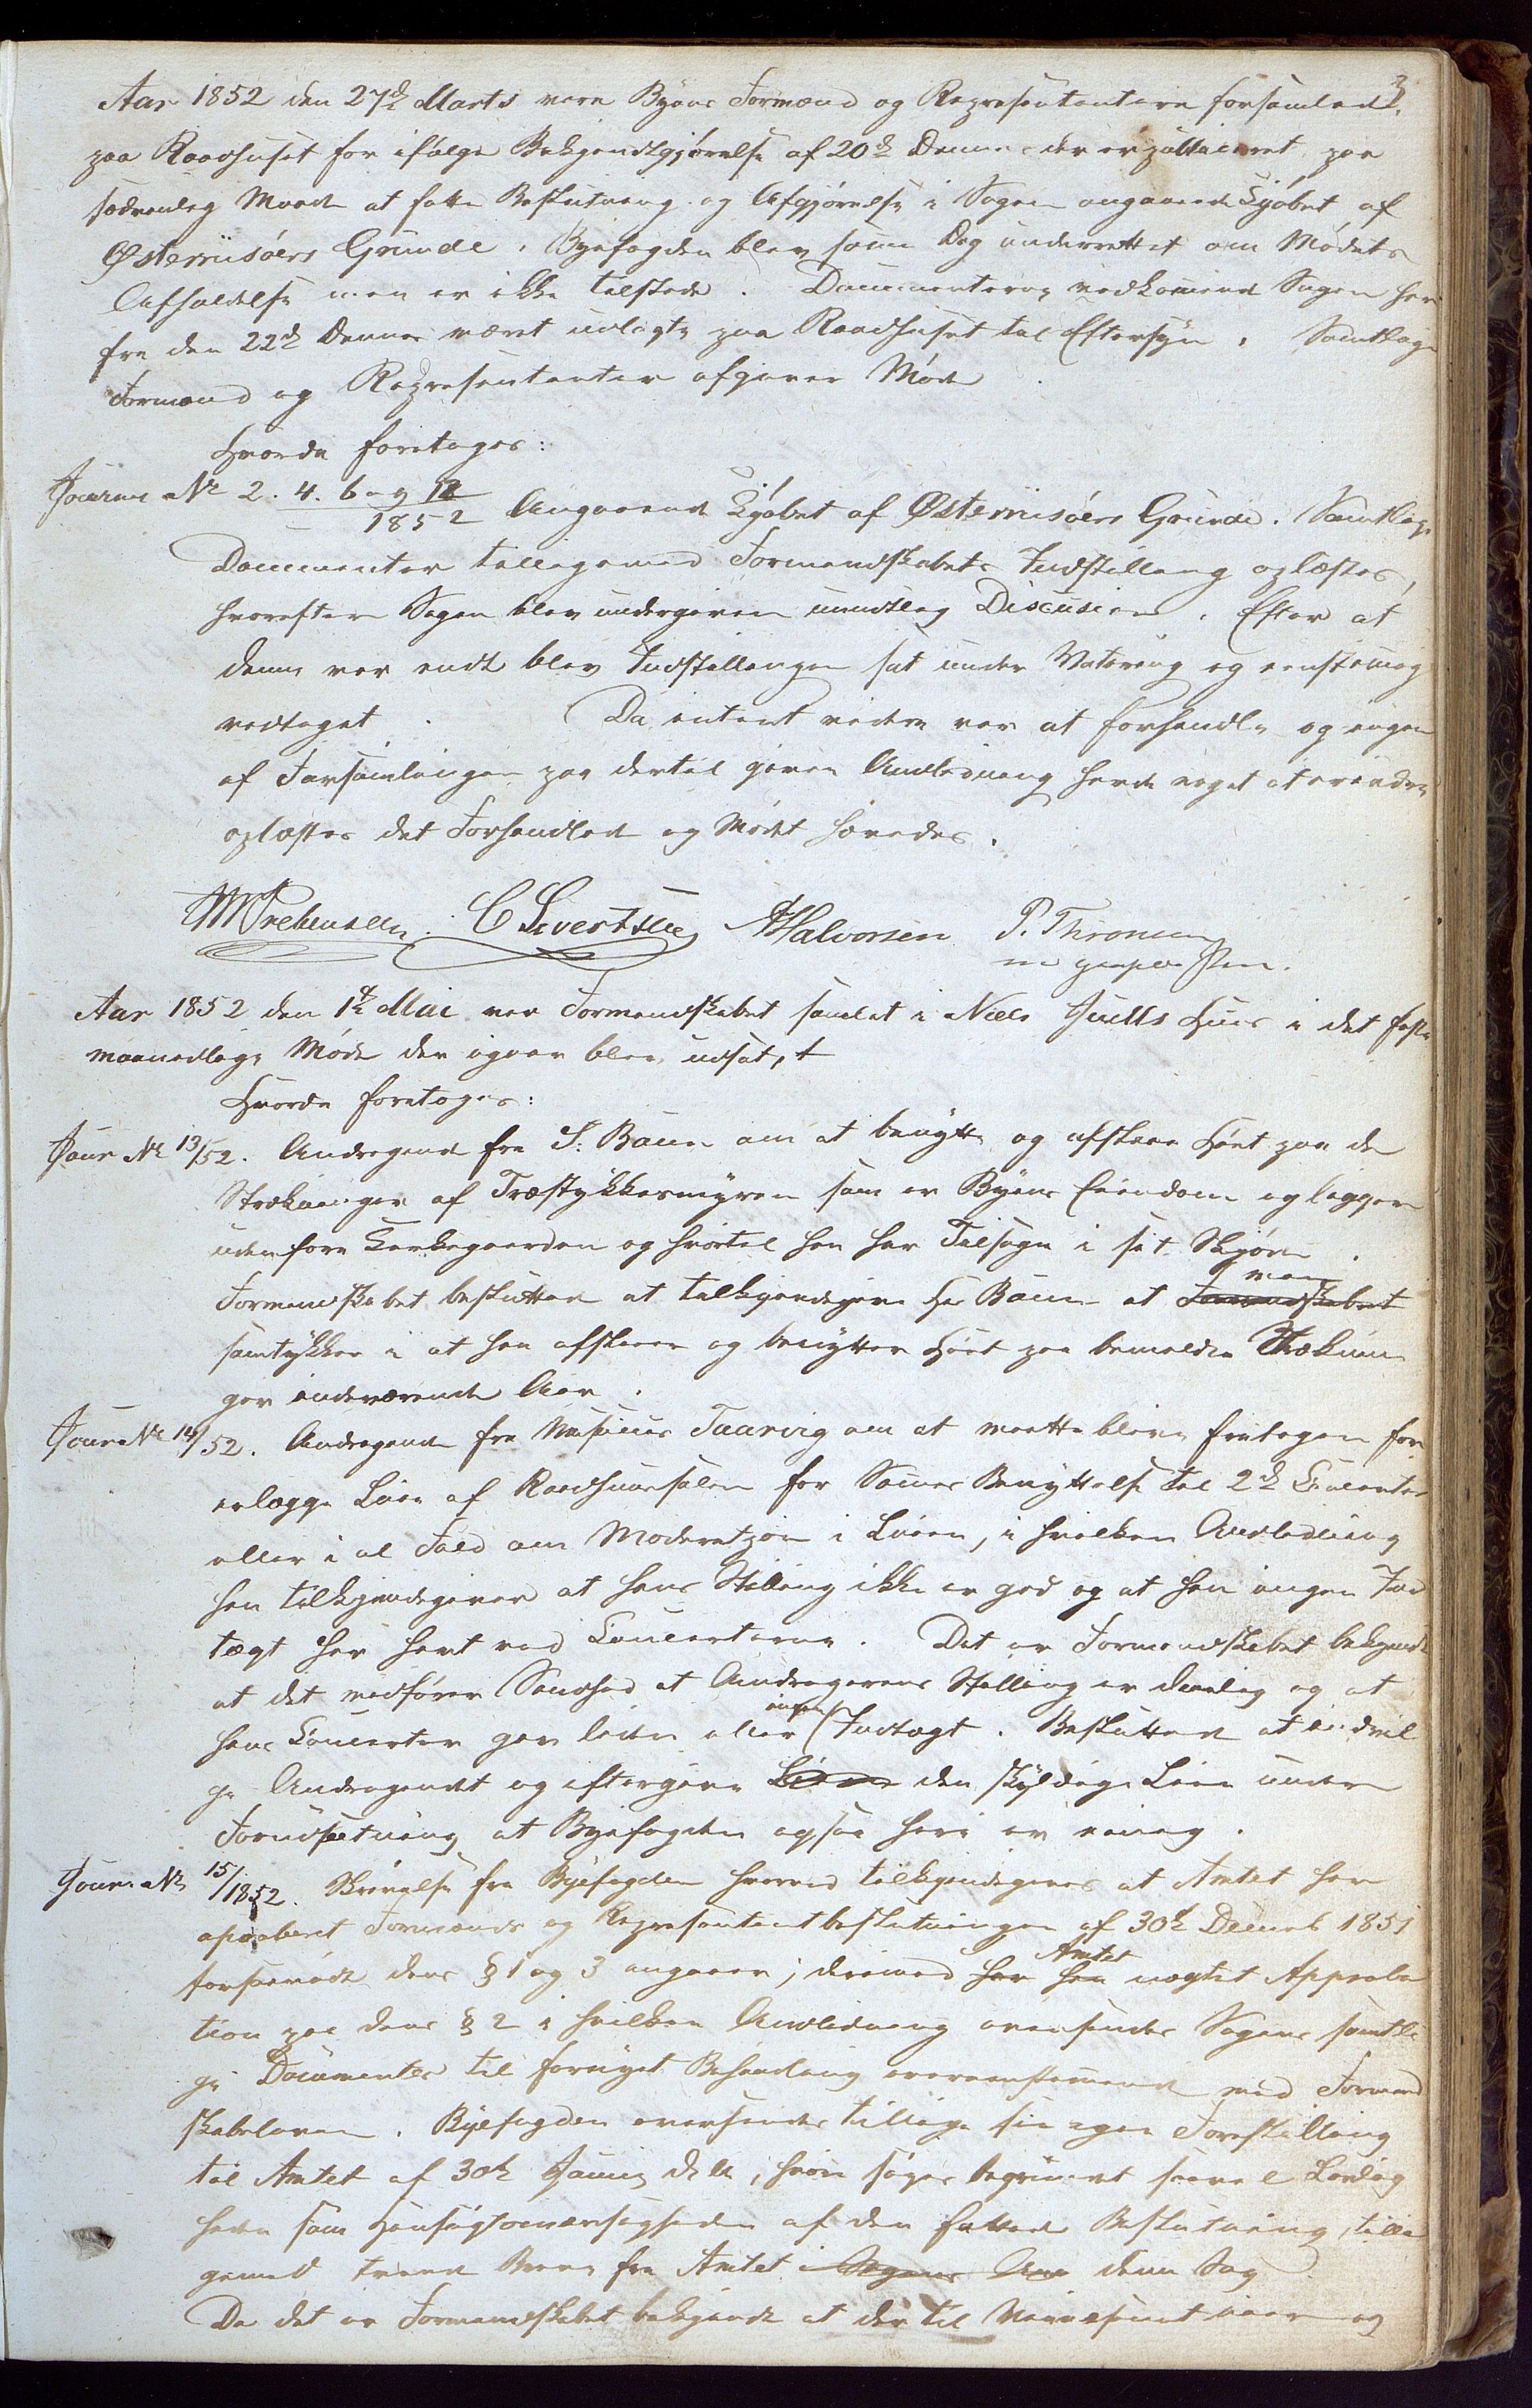 3
Aar 1852 den 27de Marts vare Byens Formænd og Repræsentantere forsamlede
paa Raadhuset for ifølge Bekjendtgjørelse af 20de Dennes der er publiceret paa
sædvanlig Maade at fatte Beslutning og Afgjørelse i Sagen angaaende Kjøbet af
Østerriisøers Grunde. Byefogden blev samme Dag underrettet om Mødets
Afholdelse men er ikke tilstede. Documenterne vedkommende Sagen har
fra den 22de Dennes været udlagte paa Raadhuset til Eftersyn. Samtlige
Formænd og Repræsentanter afgaver Møde.
Hvorda foretoges:
Journ No 2. 4. 6 og 12
1852 Angaaende Kjøbet af Østerriisøers Grunde. Samtlige
Documenter tilligemed Formandskabets Indstilling oplæstes,
hvorefter Sagen blev undergiven mundtlig Discusion. Efter at
denne var endt blev Indstillingen sat under Votering og eenstemig
vedtaget. Da intent videre var at forhandle og ingen
af Forsamlingen paa dertil given Anledning havde noget at erindre
oplæstes det Forhandlede og Mødet hævedes.
C Sivertsen AHalvorsen P. Thronsen
m paaholden Pen.
Aar 1852 den 1de Mai var Formandskabet samlet i Niels Juells Huus i det faste
maanedlige Møde der igaar blev udsat, t
Hvorda foretoges:
Jour No 13/52. Andragende fra S: Baun om at benytte og afskære Høet paa de
Strækninger af Træstykkesmyren som er Byens Eiendom og ligger
udenfore Kirkegaarden og hvortil han har Tilsagn i sit Skjøde.
Formandskabet besluttede at tilkjendegive Hr Baun at Formandskabet man
samtykker i at han afskærer og benytter Høet paa bemeldte Strækninn
ger indeværende Aar.
Jour No 14/52. Andragende fra Musicus Taarvig om at maatte blive fritagen for
erlægge Leie af Raadhuussalen for Sammes Benyttelse til 2de Concerter
eller i al Fald om Moderatjon i Leien, i hvilken Anledning
han tilkjendegiver at hans Stilling ikke er god og at han ingen Ind
tægt har havt ved Concerterne. Det er Formandskabet bekjendt
at det medfører Sandhed at Andragerens Stilling er daarlig og at
hans Concerter gav liden eller ingen Indtægt. Besluttede at indvil
ge Andragendet og eftergive den skyldige Leie under
Forudsætning at Byefogden ogsaa heri er enig.
Journ No 15/1852. Skrivelse fra Byefogden hvorved tilkjendegives at Amtet har
aproberet Formænds og Repræsentantbeslutningen af 30te Decemb 1851
forsaavidt dens § 1 og 3 angaaer; derimod har han Amtet nægtet Approba
tion paa dens § 2 i hvilken Anledning oversendes Sagens samtli
ge Documenter til fornyet Behandling overeensstemmende med Formand
skabsloven. Byefogden oversender tillige sin egen Forestilling
til Amtet af 30te d. A., hvori søges begrundet saavel Lovlig
heden som Hensigtsmæssigheden af den fattede Beslutning, tilli
gemed trende Breve fra Amtet i Sagens denne Sag
Da det er Formandskabet bekjendt at der til og